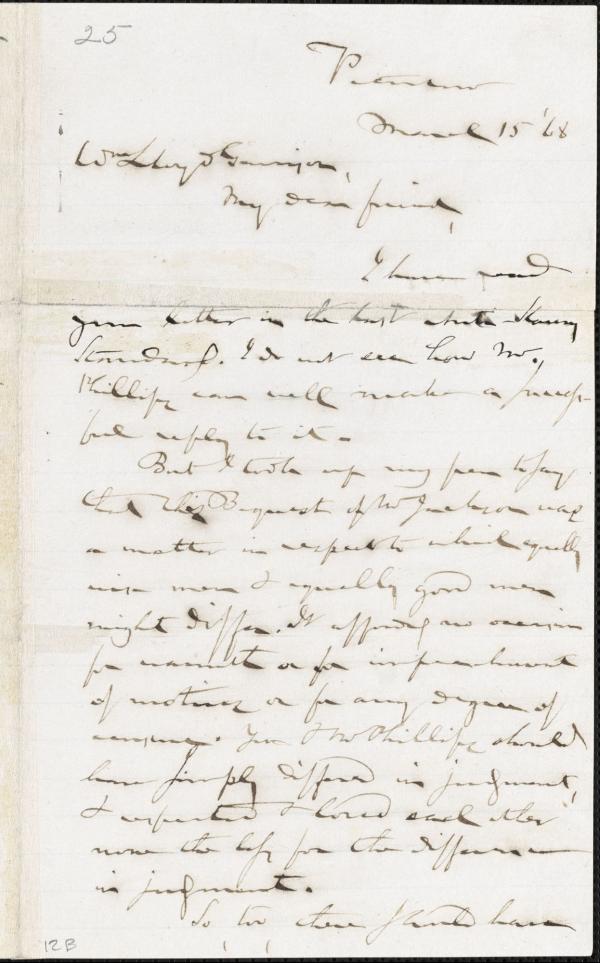 25
Peterboro
March 15 '68
Wm Lloyd Garrison,
My dear friend,
I have read
your letter in the last Anti-Slavery
Standard. I do not see how Mr.
Phillips can well make a success-
ful reply to it.
But I took up my pen to say
that this Bequest of Mr Jackson was
a matter in respect to which equally
wise men & equally good men
might differ. It affords no occasion
for warmth or for impeachment
of motives or for any degree of
censure. You & Mr Phillips should
have simply differed in judgment,
& respected & loved each other
none the less for the difference
in judgment.
So too there should have
12B